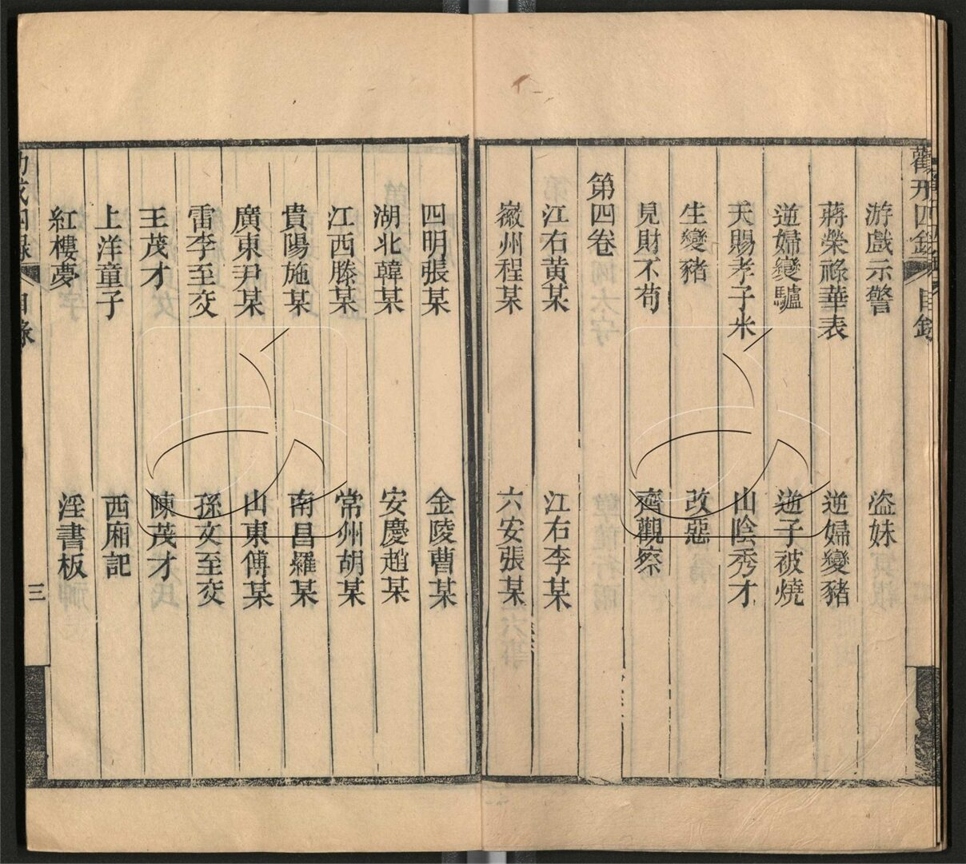 游戲示警 盜妹
蔣榮祿華表 逆婦變豬
逆婦變驢 逆子被燒
天賜孝子米 山陰秀才
生變豬 改惡
見財不苟 齊觀察
第四卷
江右黃某 江右李某
徽州程某 六安張某
四明張某 金陵曹某
湖北韓某 安慶趙某
江西滕某 常州胡某
貴陽施某 南昌羅某
廣東尹某 山東傅某
雷李至交 孫文至交
王茂才 陳茂才
上洋童子 西廂記
紅樓夢 淫書板
四錄 目錄 三